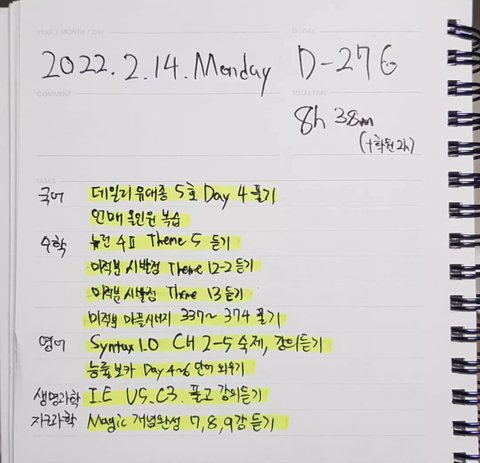 YEAR / MONTH / DAY
D-DAY
2022. 2. 14. Monday
D-276
COMMENT
TOTAL TIME
8h 38m
(+학원 2h)
TASKS
국어 데일리 유대종 5호 Day 4 풀기
언매 올인원 복습
수학 뉴런 수Ⅱ Theme 5 듣기
미적분 시발점 Theme 12-2 듣기
미적분 시발점 Theme 13 듣기
미적분 마플시너지 337~374 풀기
영어 Syntax 1.0 CH 2-5 숙제, 강의듣기
능률보카 Day 4~6 단어 외우기
생명과학 I.E U5. C3. 풀고 강의듣기
지구과학 Magic 개념완성 7,8,9강 듣기